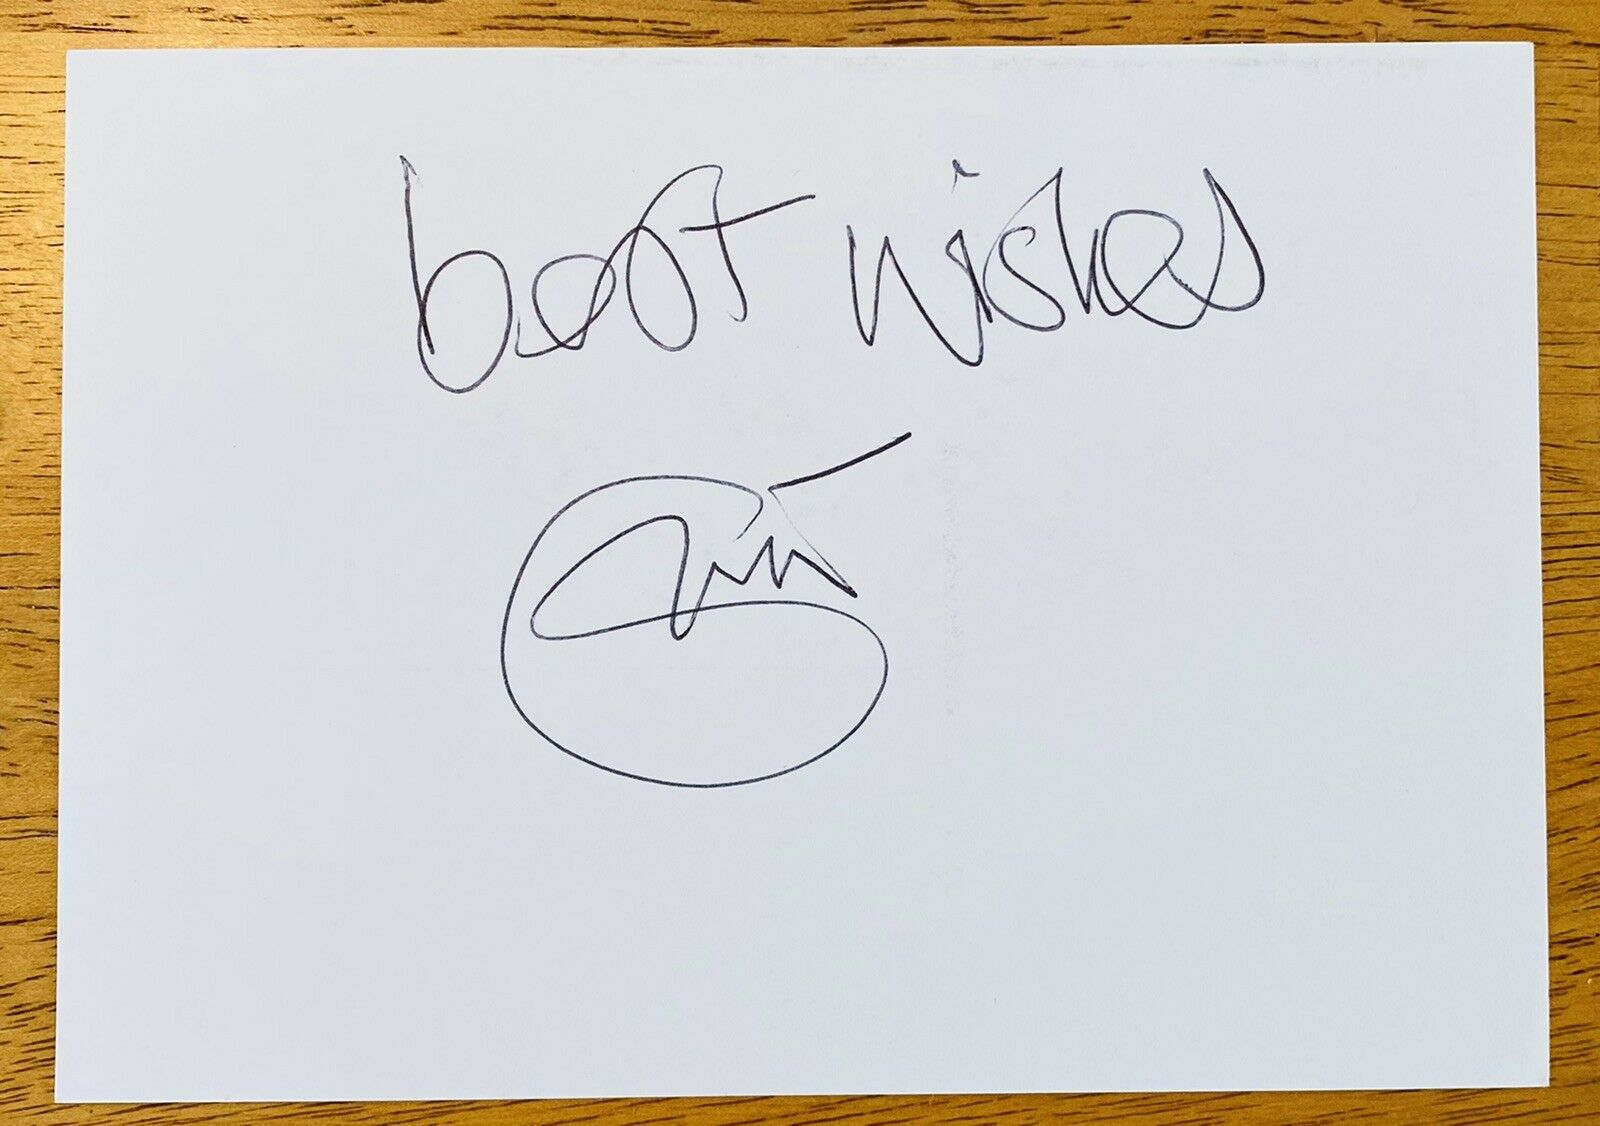 best wishes